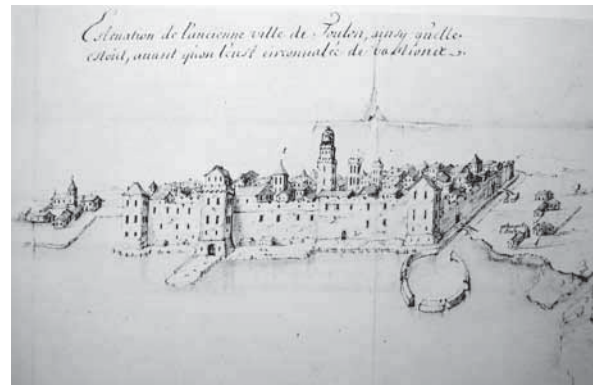 Esleuation de l'ancienne ville de Toulon, ainsy qu'elle
estoit, auant qu'on l'eust circonualée de bastions.